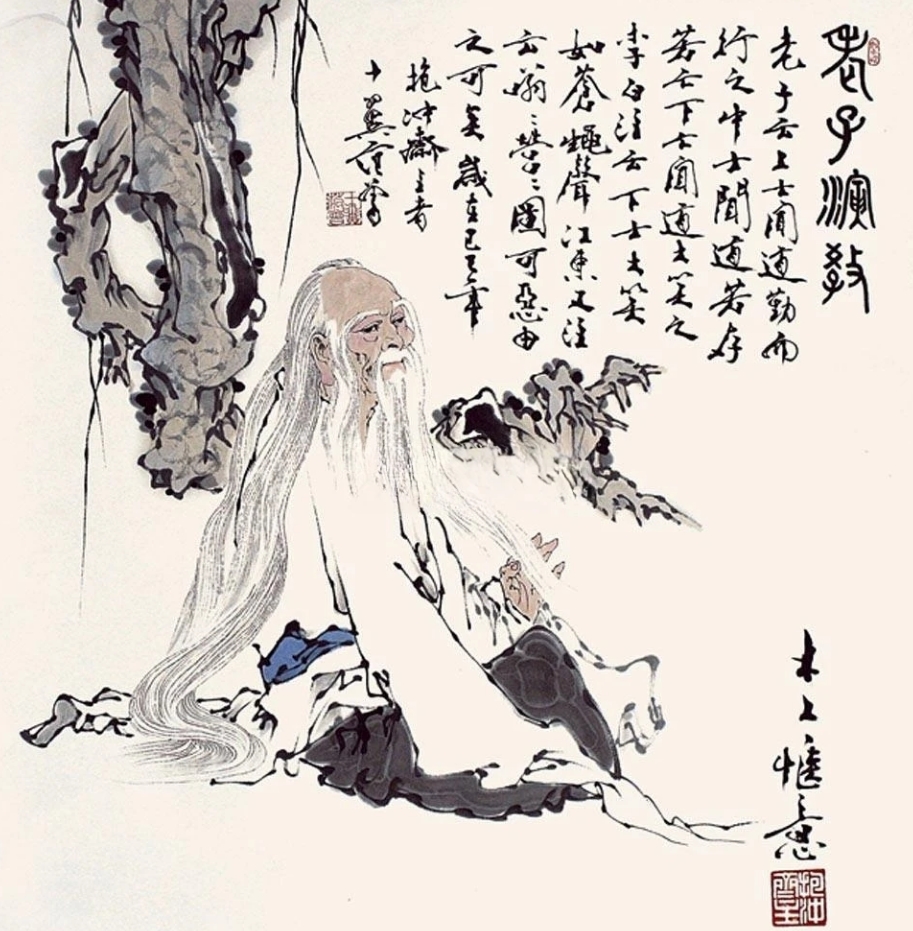 老子演教
老子云上士聞道勤而
行之中士聞道若存
若亡下士聞道大笑之
李白注云下士大笑
如蒼蠅聲江東又注
云嗡嗡營營可惡由
之可矣歲在己巳年
抱沖齋主者
十翼范曾
抱沖齋主